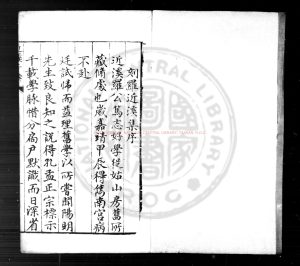 刻羅近溪集序
近溪羅公篤志好學從姑山房舊所
藏脩處也歲嘉靖甲辰得雋南宮病
不赴
廷試歸而益理舊學以所嘗聞陽明
先生致良知之說得孔孟正宗標示
千載學脉惜分扃戶默識而日深省